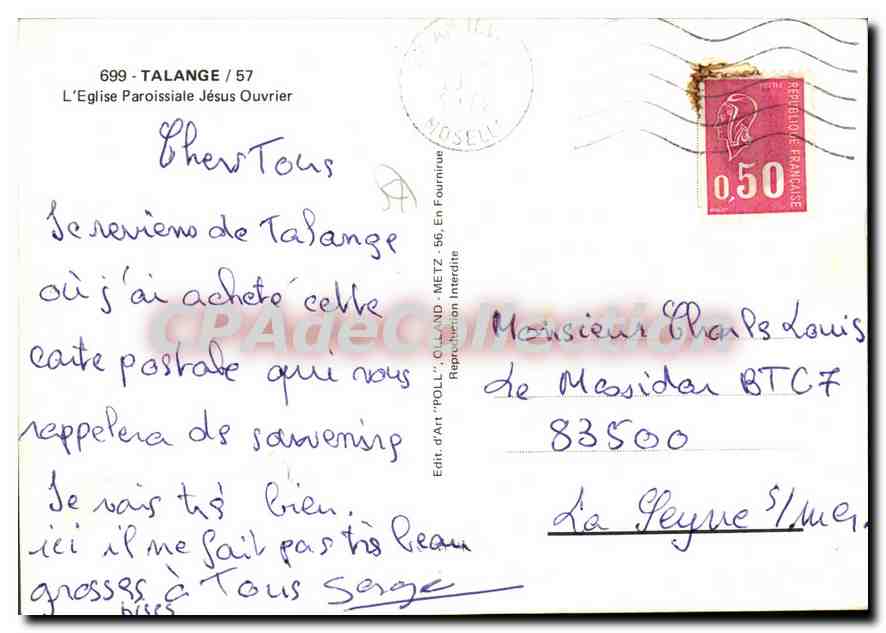 699 - TALANGE / 57
L'Eglise Paroissiale Jésus Ouvrier
Chers Tous
Je reviens de Talange
où j'ai acheté cette
carte postale qui vous
rappelera des souvenirs
Je vais très bien.
ici il ne fait pas très beau
grosses à Tous Serge
bises
57
Edit. d'Art "POLL", OLLAND - METZ - 56, En Fournirue
Reproduction Interdite
MOSELLE
POSTES
RÉPUBLIQUE FRANÇAISE
0,50
Monsieur Charls Louis
Le Messidor BTC7
83500
La Seyne s/mer.
CPAdeCollection